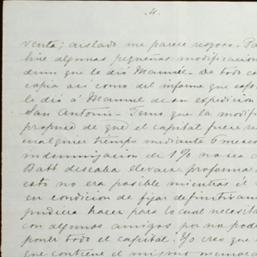 4.
venta; aislado me parece nogoso. Pa
hice algunas pequeñas modificacion
drum que le dió Manuel. De todo co
copia así como del informe que
le dió á Manuel de su expedicion
San Antonio. Temo que la modif
propuse de que el capital fuere re
cualquier tiempo mediante 6 meses
indemnizacion de 1% no sea
Batt deseaba llevara proforma
esto no era posible mientras él
en condicion de fijar definitivam
pudiera hacer para lo cual necesita
con algunos amigos por no pod
poner todo el capital. Yo creo que
que contiene el mismo memora